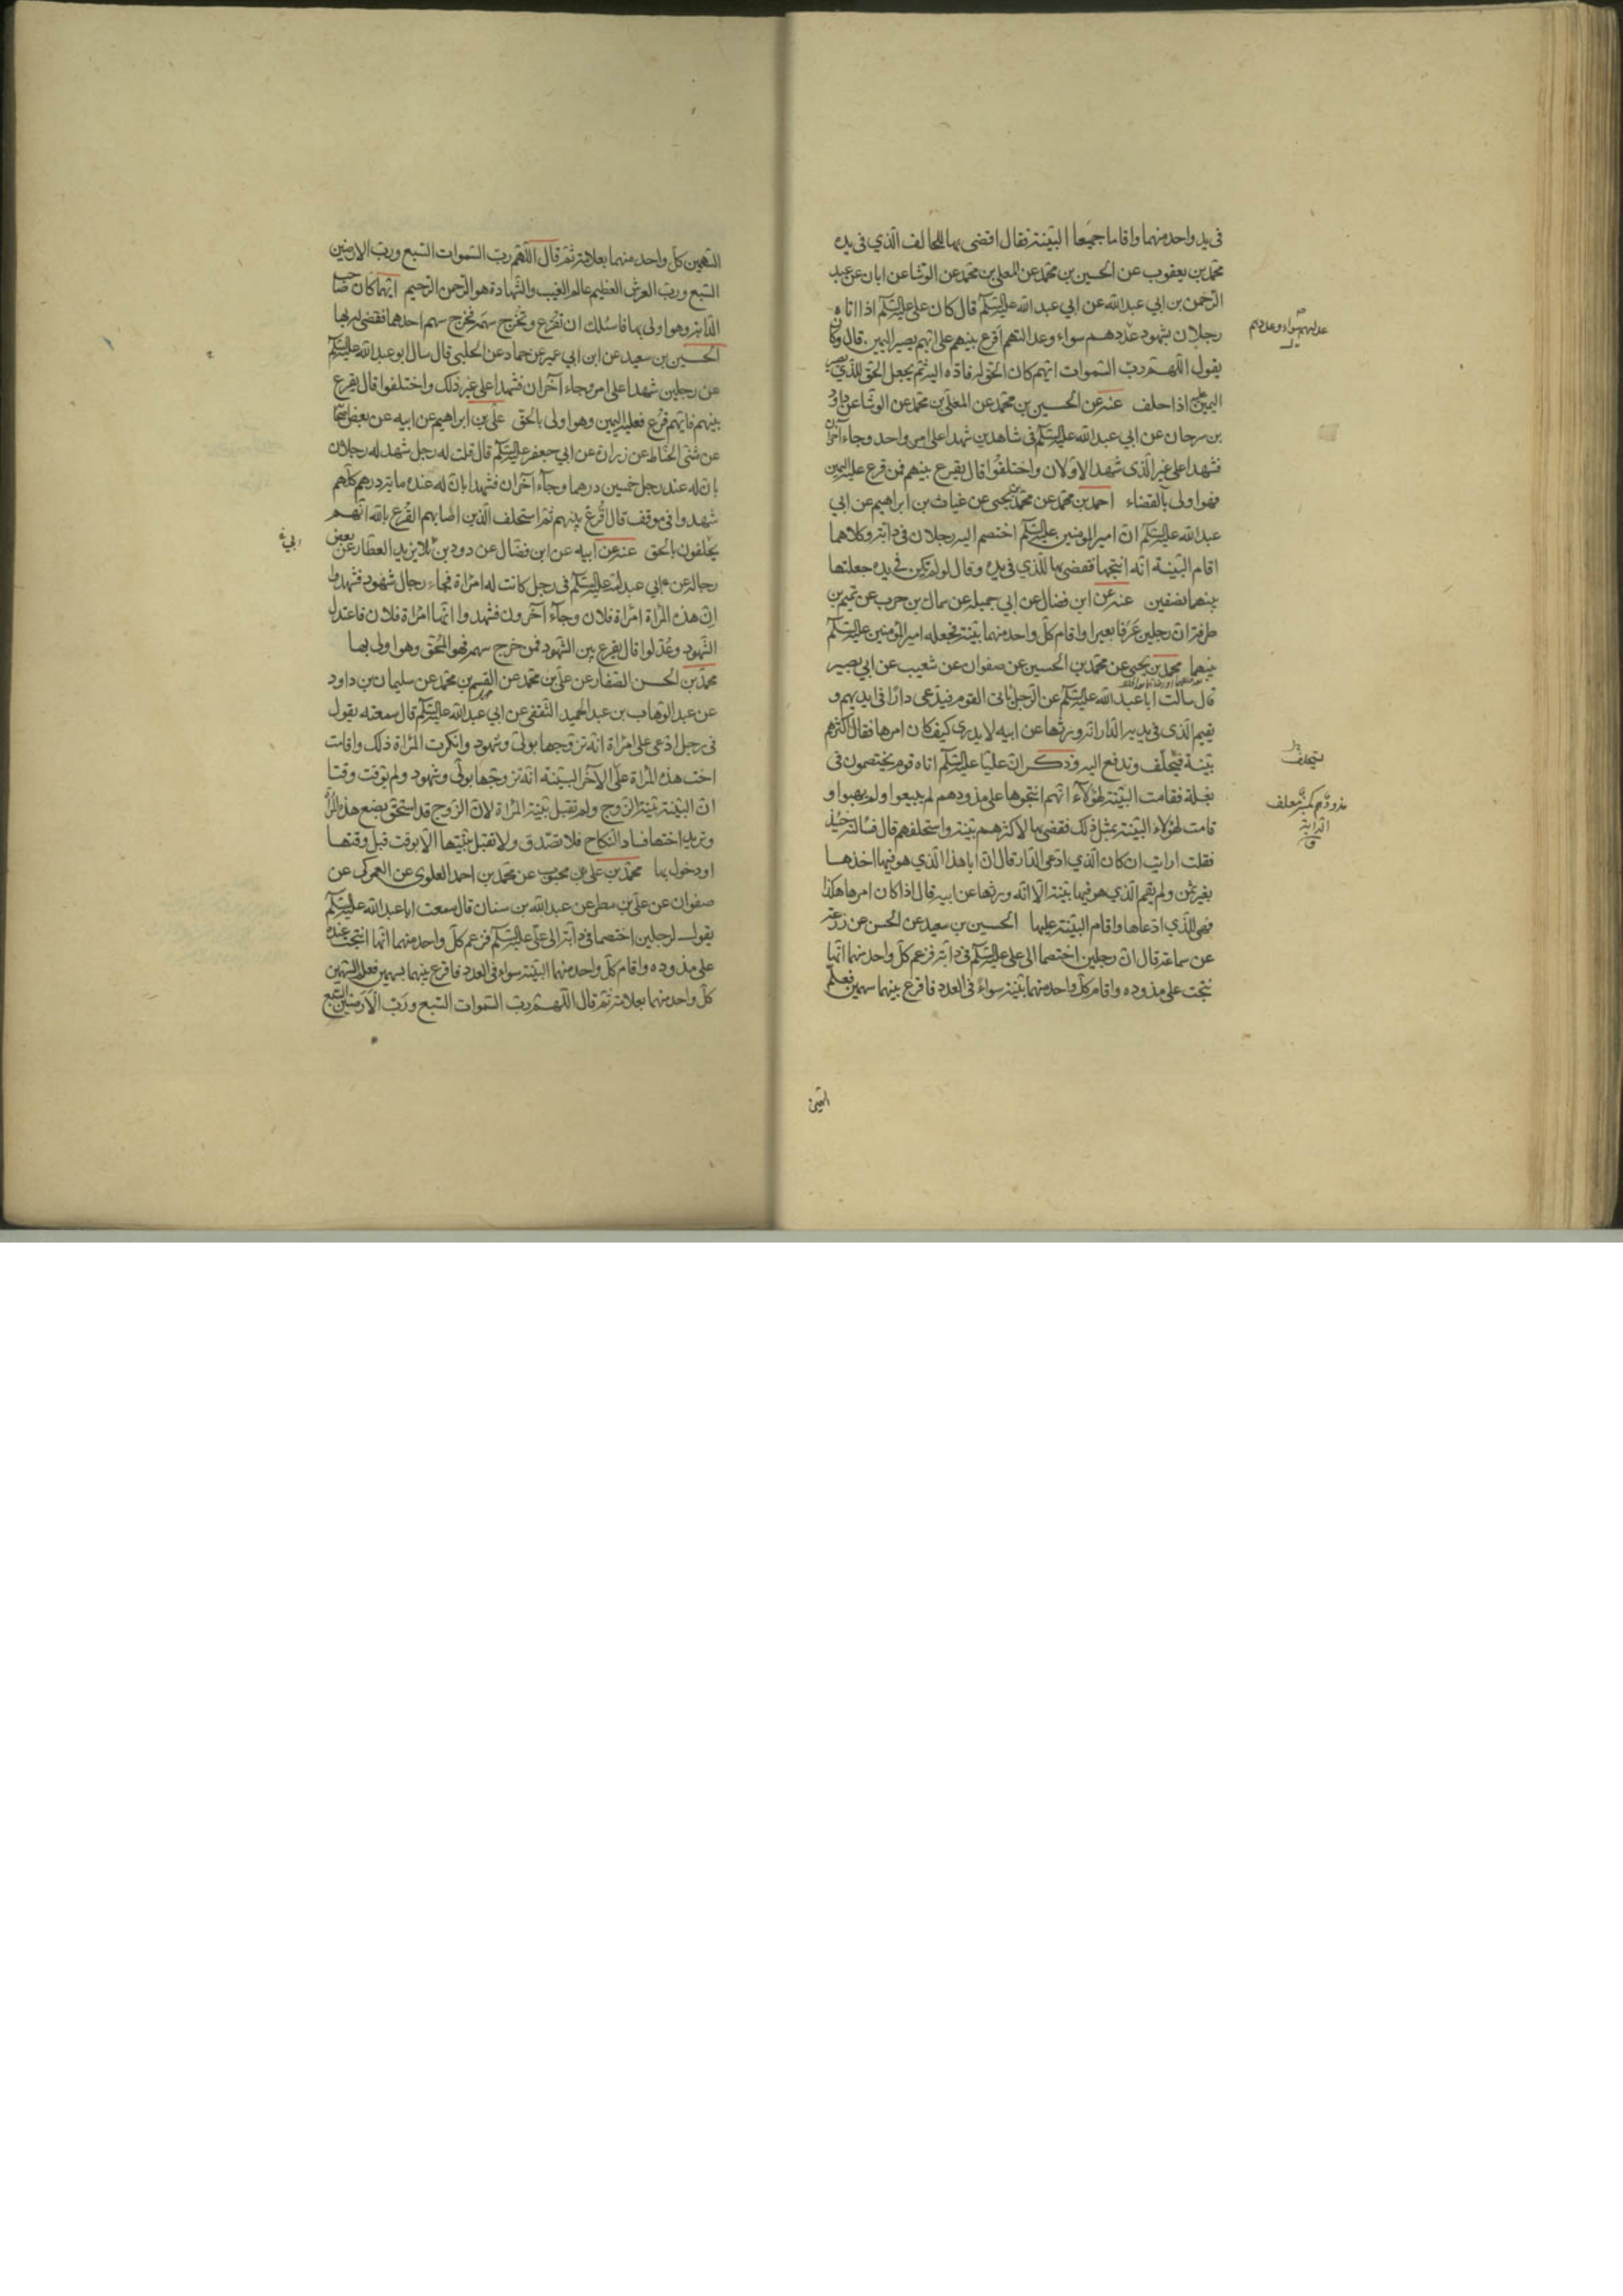 في يد واحد منهما واقاما جميعا البينة فقال اقضى بها للحالف الذي في يده
محمد بن يعقوب عن الحسين بن محمد عن المعلى بن محمد عن الوشا عن ابان عن عبد
الرحمن بن ابي عبد الله عن ابي عبد الله عليه السلم قال كان علي عليه السلم اذا اتاه
رجلان بشهود عددهم سواء وعدالتهم اقرع بينهم على ايهم يصير اليمين قال وكان
يقول اللهم رب السموات ايهم كان الحق له فاده اليه ثم يجعل الحق للذي يصير
اليمين عليه اذا حلف عنه عن الحسين بن محمد عن المعلى بن محمد عن الوشا عن داود
بن سرحان عن ابي عبد الله عليه السلم في شاهدين شهدا على امر واحد وجاء آخران
فشهدا على غير الذي شهد الاولان واختلفوا قال يقرع بينهم فمن قرع عليه اليمين
فهو اولى بالقضاء احمد بن محمد عن محمد بن يحيى عن غياث بن ابراهيم عن ابي
عبد الله عليه السلم ان امير المومنين عليه السلم اختصم اليه رجلان في دابة وكلاهما
اقام البينة انه انتجها فقضى بها للذي في يده وقال لو لم تكن في يده جعلتها
بينهما نصفين عنه عن ابن فضال عن ابي جميلة عن سماك بن حرب عن تميم بن
طرفة ان رجلين عرفا بعيرا واقام كل واحد منهما بينة فجعله امير المؤمنين عليه السلم
بينهما محمد بن يحيى عن محمد بن الحسين عن صفوان عن شعيب عن ابي بصير
قال سالت ابا عبد الله عليه السلم عن الرجل ياتى القوم فيدعى دارا في ايديهم و
يقيم الذي في يديه الدار انه ورثها عن ابيه لا يدري كيف كان امرها فقال اكثرهم
بينة فيتحلف وتدفع اليه وذكر ان عليا عليه السلم اتاه قوم يختصمون في
بغلة فقامت البينة لهؤلآء انهم انتجوها على مذودهم لم يبيعوا ولم يهبوا و
قامت لهؤلاء البينة بمثل ذلك فقضى بها لاكثرهم بينة واستحلفهم قال فسالته حينئذ
فقلت ارايت ان كان الذي ادعى الدار قال ان ابا هذا الذي هو فيها اخذها
بغير ثمن ولم يقم الذي هو فيها بينة الا انه ورثها عن ابيه قال اذا كان امرها هكذا
فهى للذي ادعاها واقام البينة عليها الحسين بن سعيد عن الحسن عن زرعة
عن سماعة قال ان رجلين اختصما الى علي عليه السلم في دابة فزعم كل واحد منهما انها
نتجت على مذوده واقام كل واحد منهما بينة سواءً في العدد فاقرع بينهما سهمين فعلم
عدلهم سواء وعددهم
يستحلف
مذودهم كمنبر معلف
الدابة
ق
السهمين
السهمين كل واحد منهما بعلامة ثم قال اللهم رب السموات السبع ورب الارضين
السبع ورب العرش العظيم عالم الغيب والشهادة هو الرحمن الرحيم ايهما كان صاحب
الدابة وهو اولى بها فاسئلك ان تقرع وتخرج سهمه فخرج سهم احدهما فقضى له بها
الحسين بن سعيد عن ابن ابي عمير عن حماد عن الحلبى قال سال ابو عبد الله عليه السلم
عن رجلين شهدا على امر وجاء آخران فشهدا على غير ذلك واختلفوا قال يقرع
بينهم فايهم قرع فعليه اليمين وهو اولى بالحق علي بن ابراهيم عن ابيه عن بعض اصحابنا
عن مثنى الحناط عن زرارة عن ابي جعفر عليه السلم قال قلت له رجل شهد له رجلان
بان له عند رجل خمسين درهما وجاء آخران فشهدا بان له عنده ماية درهم كلهم
شهدوا في موقف قال اقرع بينهم ثم استحلف الذين اصابهم القرع بالله انهم
يحلفون بالحق عنه عن ابيه عن ابن فضال عن داود بن ابي يزيد العطار عن بعض
رجاله عن ابي عبد الله عليه السلم في رجل كانت له امراة فجاء رجال شهود فشهدوا
ان هذه المراة امراة فلان وجآء آخرون فشهدوا انها امراة فلان فاعتدل
الشهود وعدلوا قال يقرع بين الشهود فمن خرج سهمه فهو المحق وهو اولى بها
محمد بن الحسن الصفار عن علي بن محمد عن القسم بن محمد عن سليمان بن داود
عن عبد الوهاب بن عبد الحميد الثقفي عن ابي عبد الله عليه السلم قال سمعته يقول
في رجل ادعى على امراة انه تزوجها بولي وشهود وانكرت المراة ذلك واقامت
اخت هذه المراة على الآخر البينة انه تزوجها بولي وشهود ولم توقت وقتا
ان البينة بينة الزوج ولم تقبل بينة المراة لان الزوج قد استحق بضع هذه المراة
وتريد اختها فساد النكاح فلا تصدق ولا تقبل بينتها الا بوقت قبل وقتها
او دخول بها محمد بن علي بن محبوب عن محمد بن احمد العلوي عن العمركى عن
صفوان عن علي بن مطر عن عبد الله بن سنان قال سمعت ابا عبد الله عليه السلم
يقول لرجلين اختصما في دابة الى علي عليه السلم فزعم كل واحد منهما انها انتجت عنده
على مذوده واقام كل واحد منهما البينة سواء في العدد فاقرع بينهما بسهمين فعلم السهمين
كل واحد منهما بعلامة ثم قال اللهم رب السموات السبع ورب الارضين السبع
ابي